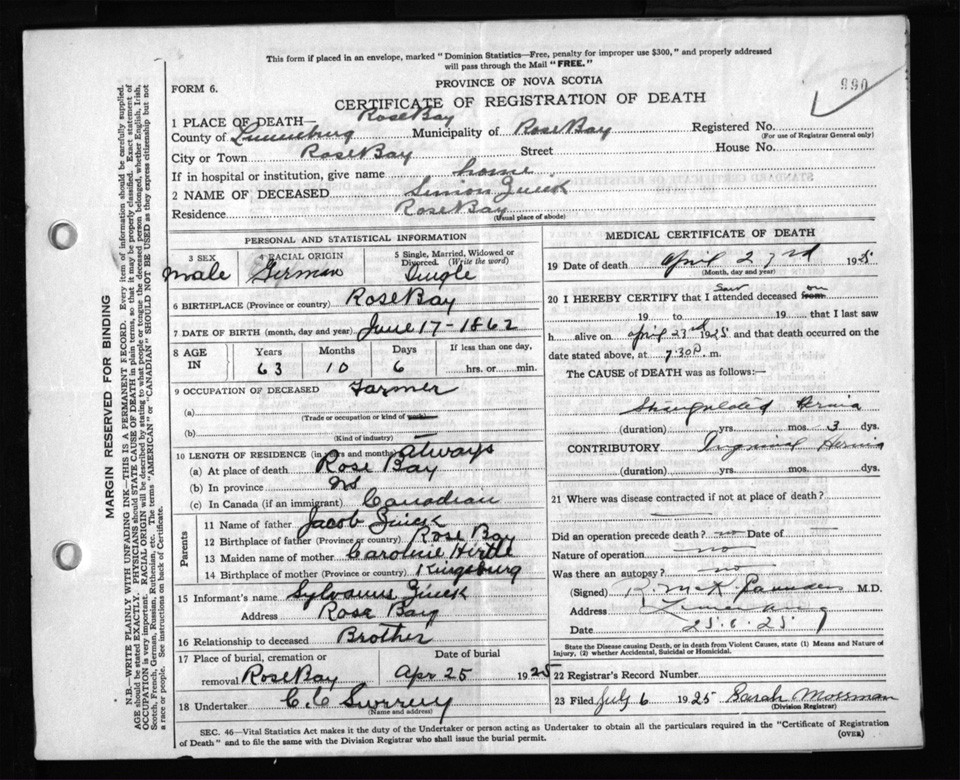 This form if placed in an envelope, marked "Dominion Statistics—Free, penalty for improper use $300," and properly addressed
will pass through the Mail "FREE."
990
PROVINCE OF NOVA SCOTIA
FORM 6.
CERTIFICATE OF REGISTRATION OF DEATH
1 PLACE OF DEATH— Rose Bay
County of Lunenburg Municipality of Rose Bay Registered No.
(For use of Registrar General only)
City or Town Rose Bay Street House No.
If in hospital or institution, give name home
2 NAME OF DECEASED Simion Zinck
Residence Rose Bay
(Usual place of abode)
PERSONAL AND STATISTICAL INFORMATION
3 SEX 4 RACIAL ORIGIN 5 Single, Married, Widowed or
Divorced. (Write the word)
Male German Single
6 BIRTHPLACE (Province or country) Rose Bay
7 DATE OF BIRTH (month, day and year) June 17-1862
8 AGE IN Years Months Days If less than one day,
63 10 6 hrs. or min.
9 OCCUPATION OF DECEASED Farmer
(a)
(Trade or occupation or kind of work)
(b)
(Kind of industry)
10 LENGTH OF RESIDENCE (in years and months) Always
(a) At place of death Rose Bay
(b) In province NS
(c) In Canada (if an immigrant) Canadian
Parents
11 Name of father Jacob Zinck
12 Birthplace of father (Province or country) Rose Bay
13 Maiden name of mother Caroline Hirtle
14 Birthplace of mother (Province or country) Kingsburg
15 Informant's name Sylvanus Zinck
Address Rose Bay
16 Relationship to deceased Brother
17 Place of burial, cremation or Date of burial
removal Rose Bay Apr 25 1925
18 Undertaker C.C
(Name and address)
MEDICAL CERTIFICATE OF DEATH
19 Date of death April 23rd 1925
(Month, day and year)
20 I HEREBY CERTIFY that I saw attended deceased from on
19 to 19 that I last saw
h alive on April 23rd 1925 and that death occurred on the
date stated above, at 7:30 P. m.
The CAUSE of DEATH was as follows:—
Strangulated Hernia
(duration) yrs. mos. 3 dys.
CONTRIBUTORY Inguinal Hernia
(duration) yrs. mos. dys.
21 Where was disease contracted if not at place of death?
Did an operation precede death? no Date of —
Nature of operation no
Was there an autopsy? no
(Signed) M.D.
Address Lunenburg
Date 25.6.25
State the Disease causing Death, or in death from Violent Causes, state (1) Means and Nature of
Injury, (2) whether Accidental, Suicidal or Homicidal.
22 Registrar's Record Number
23 Filed July 6 1925 Sarah Mossman
(Division Registrar)
SEC. 46—Vital Statistics Act makes it the duty of the Undertaker or person acting as Undertaker to obtain all the particulars required in the "Certificate of Registration
of Death" and to file the same with the Division Registrar who shall issue the burial permit. (OVER)
MARGIN RESERVED FOR BINDING
N.B.—WRITE PLAINLY WITH UNFADING INK—THIS IS A PERMANENT RECORD. Every item of information should be carefully supplied.
AGE should be stated EXACTLY. PHYSICIANS should STATE CAUSE OF DEATH in plain terms, so that it may be properly classified. Exact statement of
OCCUPATION is very important. RACIAL ORIGIN will be described by stating to what people or tongue the deceased person belonged, whether English, Irish,
Scotch, French, German, Russian, Ruthenian, etc. The terms "AMERICAN" or "CANADIAN" SHOULD NOT BE USED as they express citizenship but not
a race or people. See instructions on back of Certificate.